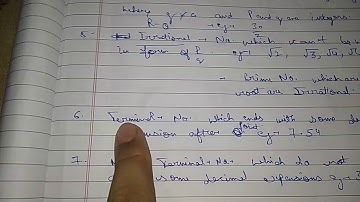 where q ≠ 0 and P and q are integers.
R-Q eg→ 30
5. Irrational → No. which can't be w
in form of P/q eg→ √2, √3, √4, √5
→ Prime No. which are
root are Irrational
6. Terminal → No. which ends with some de
after point eg→ 7.54
7. Terminal → No → which do not
some decimal expansions eg→